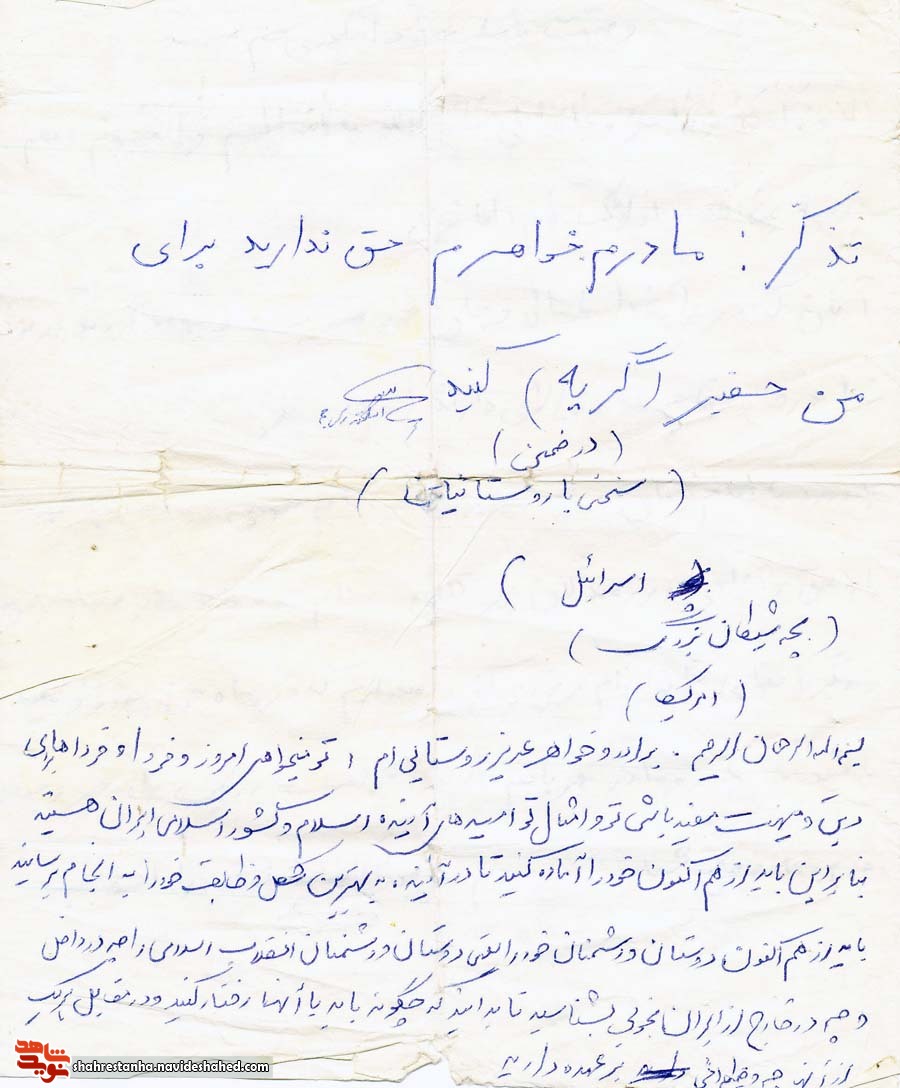 تذکّر : مادرم خواهرم حق ندارید برای
من حقیر (گریه) کنید
(در ضمن)
(سخنی با روستائیان)
اسرائیل )
(بچه شیطان بزرگ)
(امریکا)
بسم الله الرحمان الرحیم . برادر و خواهر عزیز روستائی ام ، تو میخواهی امروز و فردا و فرداها برای
دین و میهنت مفید باشی تو و امثال تو امیدهای آینده اسلام و کشور اسلامی ایران هستید
بنابراین باید از هم اکنون خود را آماده کنید تا در آینده به بهترین شکل وظایف خود را به انجام برسانید
باید از هم اکنون دوستان و دشمنان خود یعنی دوستان و دشمنان انقلاب اسلامی را چه در داخل
و چه در خارج از ایران بخوبی بشناسید تا بدانید که چگونه باید با آنها رفتار کنید و در مقابل هر یک
از آنها چه وظایفی بر عهده دارید
نوید شاهد
shahrestanha.navideshahed.com